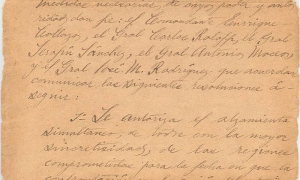 medidas necesarias, de cuyo poder y auto
ridad, dan fe: el Comandante Enrique
Collazo, el Gral Carlos Roloff, el Gral
Serafin Sánchez, el Gral Antonio Maceo,
y el Gral José M. Rodríguez, que acuerdan
comunicar las siguientes resoluciones á
seguir:
1ª Se autoriza el alzamiento
simultaneo, de todo con la mayor
simultaneidad, de las regiones
comprometidas para la fecha en que la